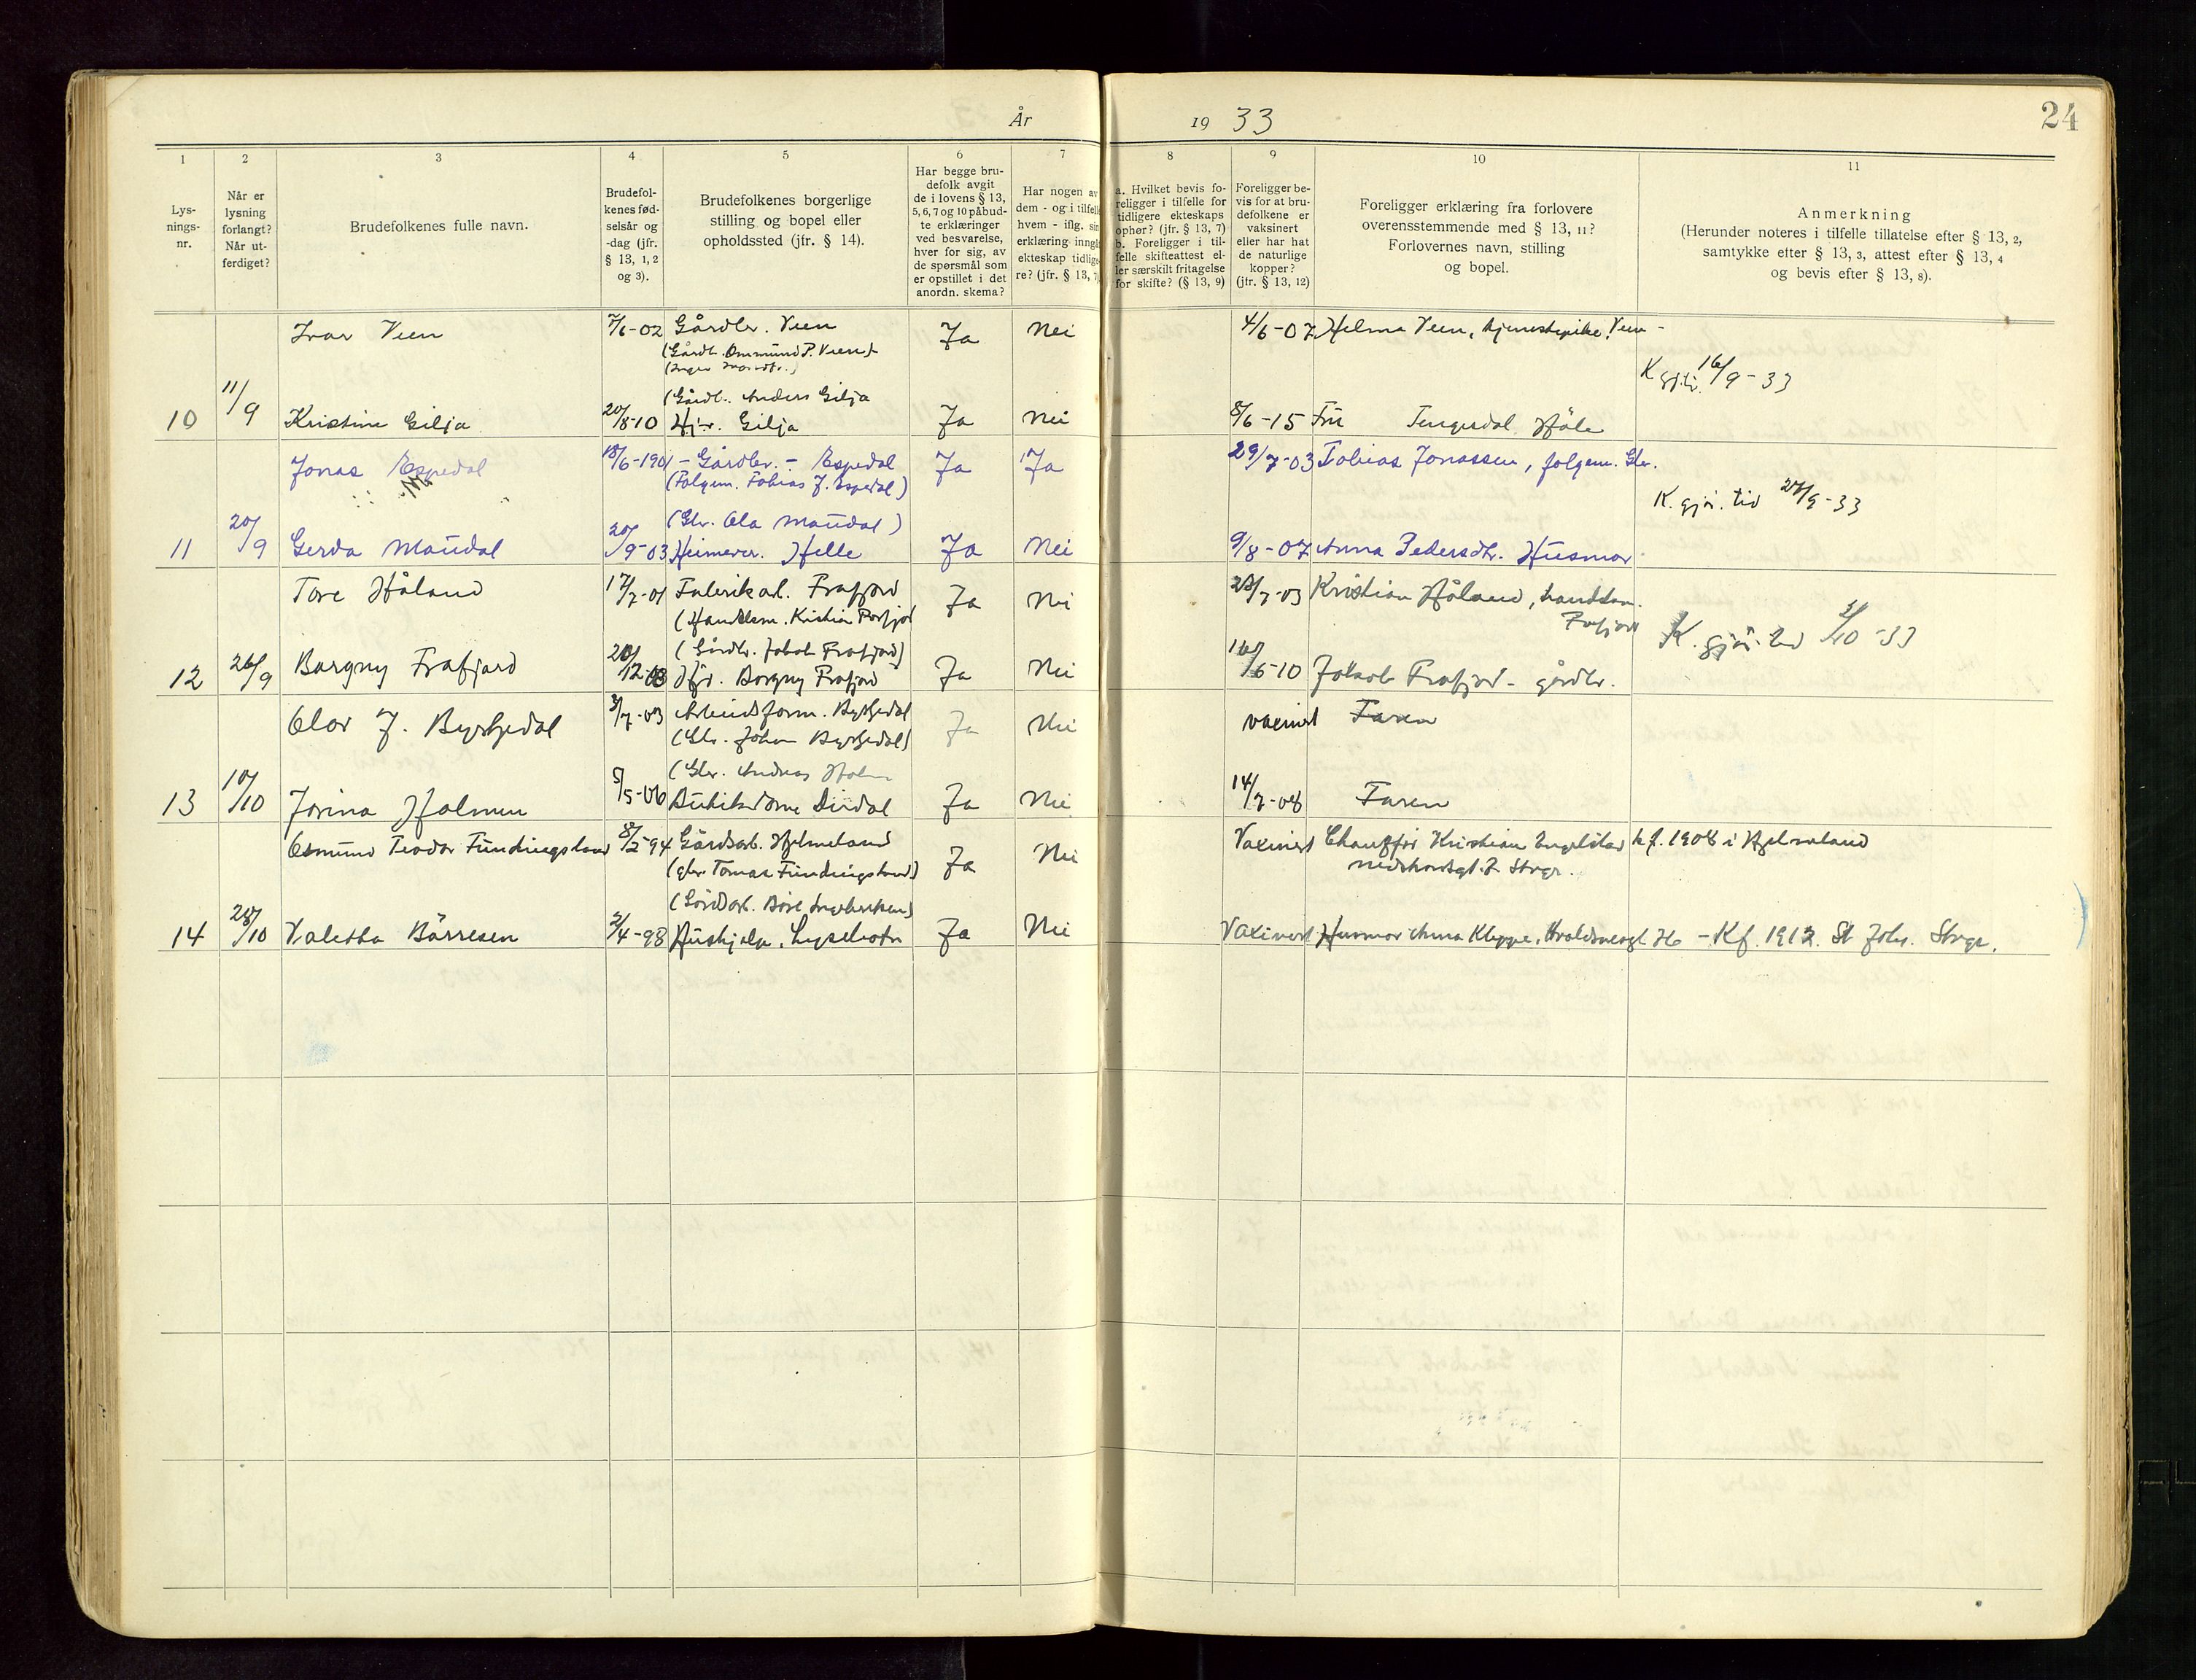 År 19 33
24
1 2 3 4 5 6 7 8 9 10 11
Lys-
nings-
nr.
Når er
lysning
forlangt?
Når ut-
ferdiget?
Brudefolkenes fulle navn.
Brudefol-
kenes fød-
selsår og
-dag (jfr.
§ 13, 1, 2
og 3).
Brudefolkenes borgerlige
stilling og bopel eller
opholdssted (jfr. § 14).
Har begge bru-
defolk avgit
de i lovens § 13,
5, 6, 7 og 10 påbud-
te erklæringer
ved besvarelse,
hver for sig, av
de spørsmål som
er opstillet i det
anordn. skema?
Har nogen av
dem - og i tilfelle
hvem - iflg. sin
erklæring inngå
ekteskap tidlige-
re? (jfr. § 13, 7)
a. Hvilket bevis fo-
religger i tilfelle for
tidligere ekteskaps
ophør? (jfr. § 13, 7)
b. Foreligger i til-
felle skifteattest el-
ler særskilt fritagelse
for skifte? (§ 13, 9)
Foreligger be-
vis for at bru-
defolkene er
vaksinert
eller har hat
de naturlige
kopper?
(jfr. § 13, 12)
Foreligger erklæring fra forlovere
overensstemmende med § 13, 11?
Forlovernes navn, stilling
og bopel.
Anmerkning
(Herunder noteres i tilfelle tillatelse efter § 13, 2,
samtykke efter § 13, 3, attest efter § 13, 4
og bevis efter § 13, 8).
Ivar Veen 7/6-02 Gårdbr. Veen Ja Nei 4/6-07 Helma Veen, tjenestepike, Veen -
(Gårdb. Ommund P. Veen)
K gjti. 16/9-33
(Gårdb. Anders Gilja
10 11/9 Kristine Gilja 20/8-10 Hjv. Gilja Ja Nei 8/6-15 Fru Tengesdal, Høle
Jonas Espedal 18/6-1901 - Gårdbr. - Espedal Ja Ja 29/7-03 Tobias Jonassen, folgem. Gbr.
(Folgem. Tobias J. Espedal)
K. gjør. tid 27/9-33
(Gbr. Ola Maudal)
11 20/9 Gerda Maudal 20/9-03 Heimever. Helle Ja Nei 9/8-07 Anna Pedersdtr. Husmor
Tore Håland 17/7-01 Fabrikarb. Frafjord Ja Nei 28/7-03 Kristian Håland, handelsm.
(Handelsm. Kristian Frafjord Frafjord
K. gjør. tid 3/10-33
(Gårdbr. Jakob Frafjord)
12 26/9 Borgny Frafjord 20/12-08 Hjv. Borgny Frafjord Ja Nei 16/6-10 Jakob Frafjord - gårdbr.
Olav J. Byrkjedal 3/7-03 Arbeidsform. Byrkjedal Ja Nei vaxinert Faren
(Gbr. Johan Byrkjedal)
(Gbr. Andreas Holm
13 10/10 Jorina Holmen 5/5-06 Butikdame Dirdal Ja Nei 14/7-08 Faren
Osmund Teodor Fundingsland 8/2-94 Gårdsarb. Hjelmeland Ja Nei Vaxinert Chauffør Kristian Engelstad kf. 1908 i Hjelmeland
(gbr. Tomas Fundingsland)
(Gårdsarb. Børe Ingebretsen)
14 28/10 Valetta Børresen 2/4-98 Hushjelp, Lysebotn Ja Nei Vaxinert Husmor Anna Kleppe, - Kf. 1912. St Johs. Stvgr.